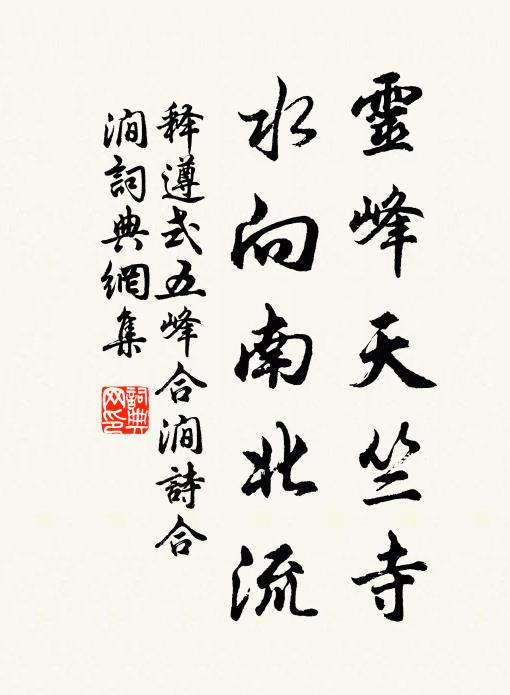 靈峰天竺寺
水向南北流
释遵式五峰合澗詩合
澗詞典網集
詞典网印